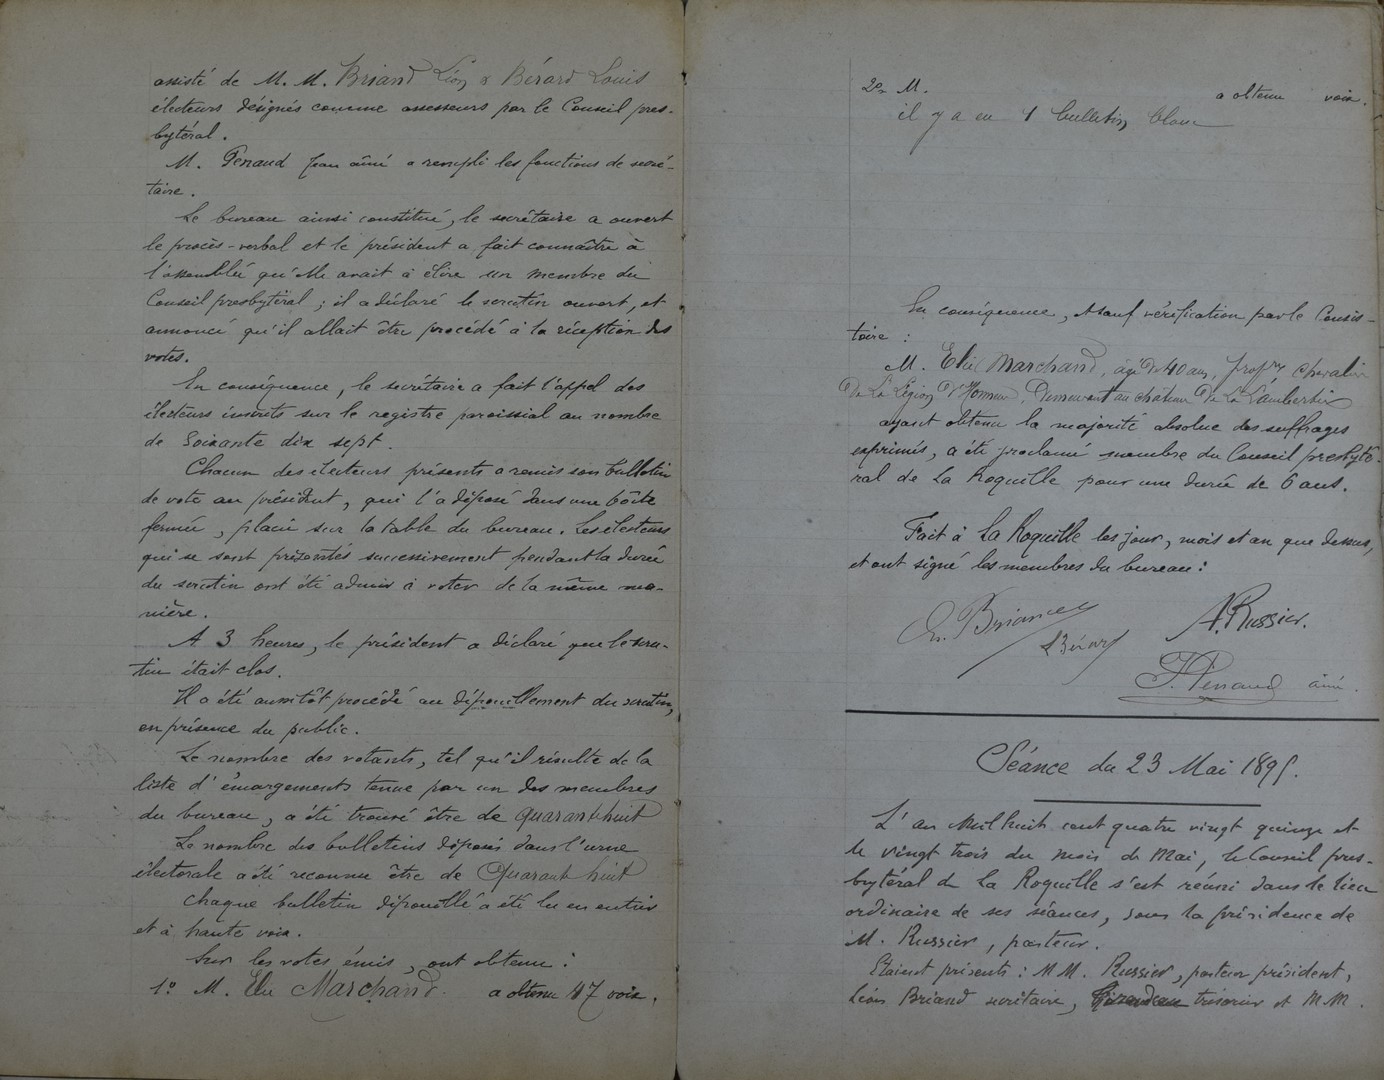 assisté de M. M. Briand Léon & Bérard Louis
électeurs désignés comme assesseurs par le Conseil pres-
bytéral.
M. Penaud Jean aîné a rempli les fonctions de secré-
taire.
Le bureau ainsi constitué, le secrétaire a ouvert
le procès-verbal et le président a fait connaître à
l'assemblée qu'elle avait à élire un membre du
Conseil presbytéral ; il a déclaré le scrutin ouvert, et
annoncé qu'il allait être procédé à la réception des
votes.
En conséquence, le secrétaire a fait l'appel des
électeurs inscrits sur le registre paroissial au nombre
de Soixante dix sept.
Chacun des électeurs présents a remis son bulletin
de vote au président, qui l'a déposé dans une boîte
fermée, placée sur la table du bureau. Les électeurs
qui se sont présentés successivement pendant la durée
du scrutin ont été admis à voter de la même ma-
nière.
A 3 heures, le président a déclaré que le scru-
tin était clos.
Il a été aussitôt procédé au dépouillement du scrutin,
en présence du public.
Le nombre des votants, tel qu'il résulte de la
liste d'émargements tenue par un des membres
du bureau, a été trouvé être de quarante huit
Le nombre des bulletins déposés dans l'urne
électorale a été reconnu être de Quarante huit
Chaque bulletin dépouillé a été lu en entier
et à haute voix.
Sur les votes émis, ont obtenu :
1º M. Elie Marchand. a obtenu 47 voix.
2º M. a obtenu voix.
il y a eu 1 bulletin blanc
En conséquence, & sauf vérification par le Consis-
toire :
M. Elie Marchand, âgé de 40 ans, propre Chevalier
De La Légion D'Honneur, Demeurant au château De La Lambertie
ayant obtenu la majorité absolue des suffrages
exprimés, a été proclamé membre du Conseil presbyté-
ral de La Roquille pour une durée de 6 ans.
Fait à La Roquille les jour, mois et an que dessus,
et ont signé les membres du bureau :
Briand
L Bérard
A. Russier.
J. Penaud aîné.
Séance du 23 Mai 1895.
L'an Mil huit cent quatre vingt quinze et
le vingt trois du mois de Mai, le Conseil pres-
bytéral de La Roquille s'est réuni dans le lieu
ordinaire de ses séances, sous la présidence de
M. Russier, pasteur.
Etaient présents : MM. Russier, pasteur président,
Léon Briand secrétaire, trésorier et MM.